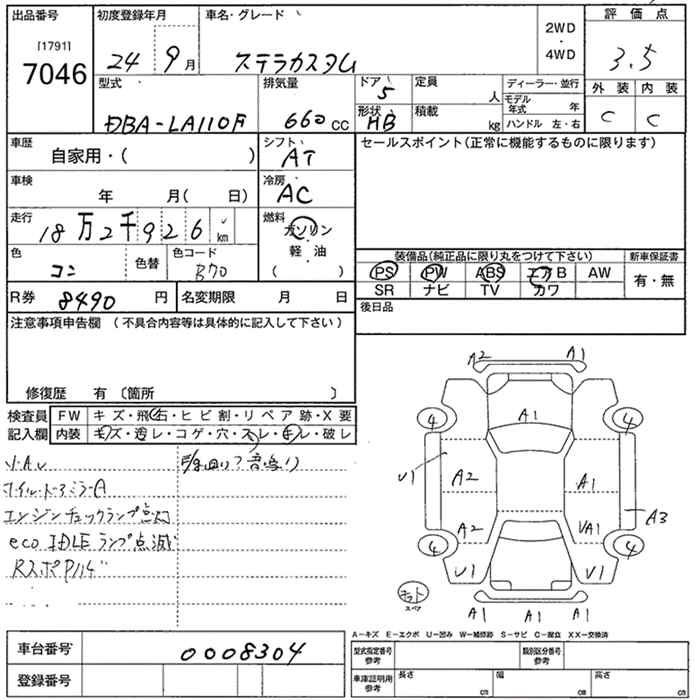 出品番号 初度登録年月 車名・グレード 2WD ・ 4WD 評価点
[1791]
7046
24年9月 ステラカスタム 3.5
型式 排気量 ドア 5 定員 人 ディーラー・並行 外装 内装
モデル年式 年
DBA-LA110F 660cc 形状 HB 積載 kg ハンドル 左・右 C C
車歴 自家用・( ) シフト AT セールスポイント(正常に機能するものに限ります)
車検 年 月( 日) 冷房 AC
走行 18万2千926km 燃料 ガソリン
軽・油
( )
色 コン 色替 色コード B70
装備品(純正品に限り丸をつけて下さい) 新車保証書
PS PW ABS エアB AW 有・無
SR ナビ TV カワ
R券 8490円 名変期限 月 日 後日品
注意事項申告欄 (不具合内容等は具体的に記入して下さい)
修復歴 有 〔箇所 〕
検査員 FW キズ・飛石・ヒビ割・リペア跡・X要
記入欄 内装 キズ・汚レ・コゲ・穴・スレ・キレ・破レ
A2 A1
A1
4 4
U1 A2 A1
A3
A2 UA1
4 4
U1 U1
A1 A1 A1
スペア
エンジンチェックランプ点灯
eco IDLEランプ点滅
A-キズ E-エクボ U-凹み W-補修跡 S-サビ C-腐食 XX-交換済
車台番号 0008304
登録番号
型式指定番号 参考 類別区分番号 参考
車庫証明用 参考 長さ cm 幅 cm 高さ cm